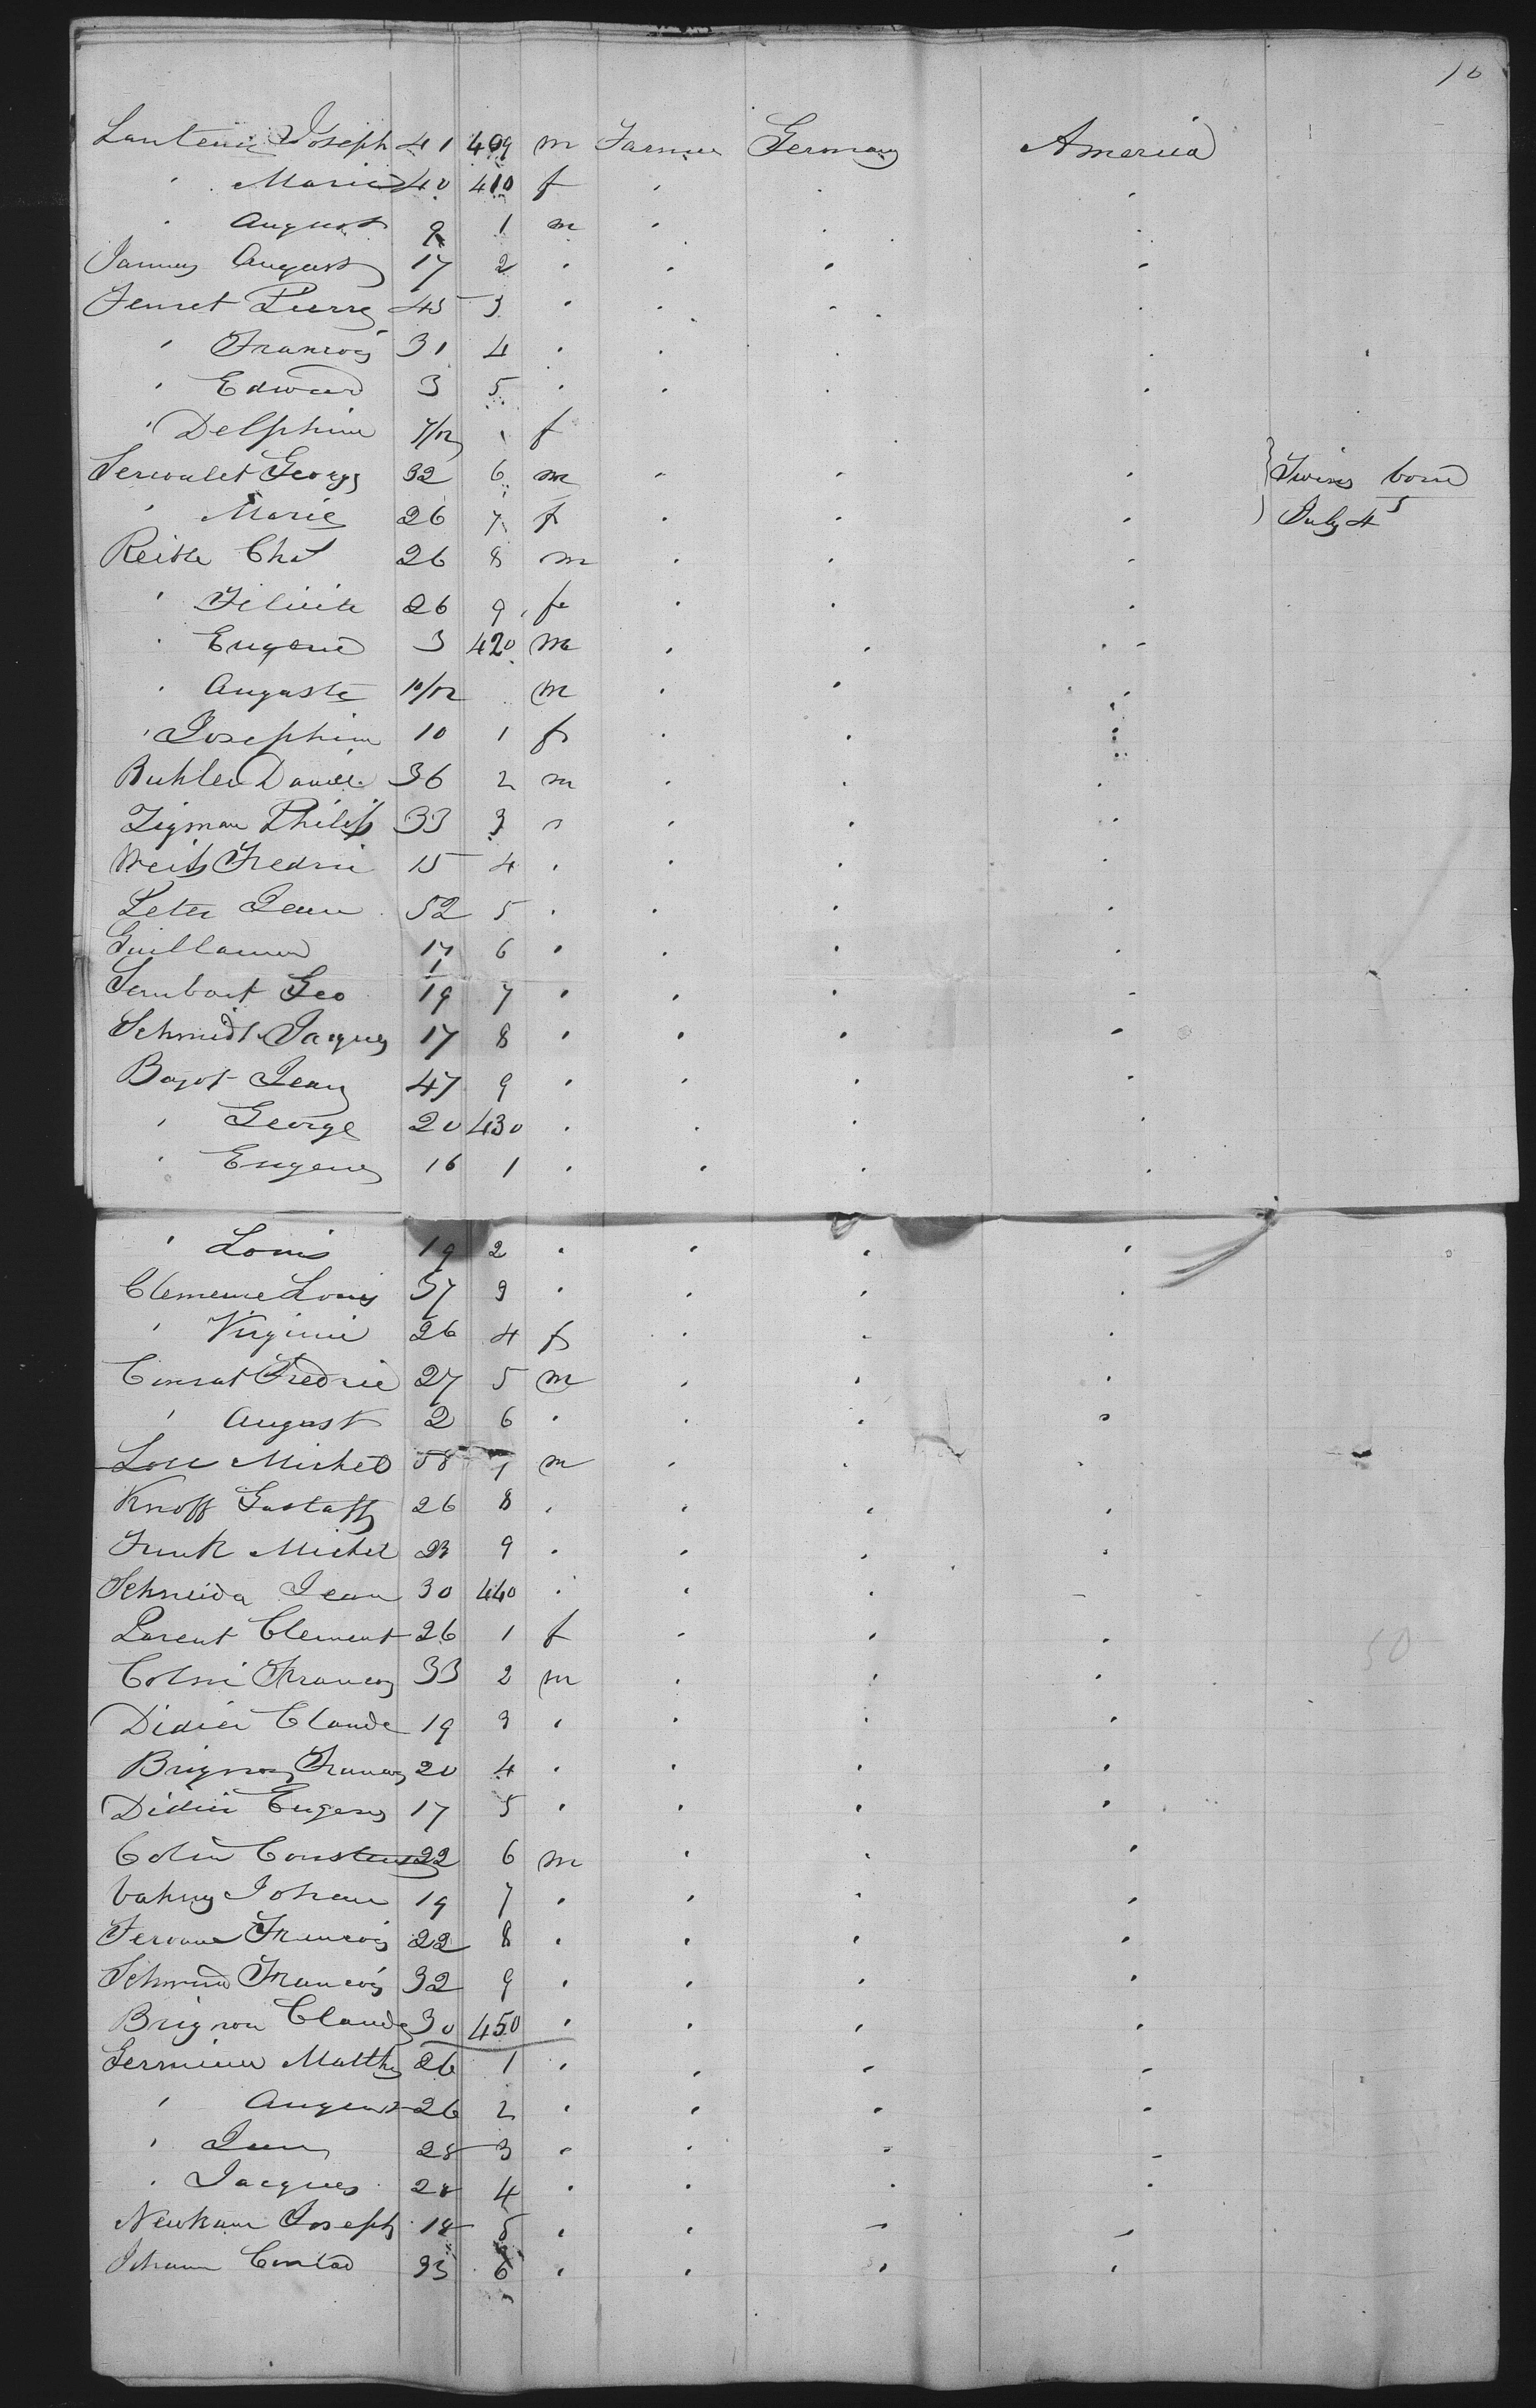 10
Joseph 41 409 m Farmer Germany America
" Marie 40 410 f " " "
" August 9 1 m " " "
August 17 2 " " " "
Pierre 45 3 " " " "
" Francois 31 4 " " " "
" Edward 3 5 " " " "
" Delphine 7/12 " f
Servoulet George 32 6 m " " " Twins born
" Marie 26 7 f " " " July 4 5
Reible Chs 26 8 m " " "
" 26 9 f " " "
" Eugene 3 420 m " " "
" Auguste 10/12 m " " "
" Josephine 10 1 f " " "
Buhler Daniel 36 2 m " " "
Zigman Philip 33 3 " " " "
Weits Fredric 15 4 " " " "
Peter Jean 52 5 " " " "
Guillaume 17 6 " " " "
Geo 19 7 " " " "
Schmidt Jacques 17 8 " " " "
Bazot Jean 47 9 " " " "
" George 20 430 " " " "
" Eugene 16 1 " " " "
" Louis 19 2 " " " "
Clemence Louis 37 3 " " " "
" Virginie 26 4 f " " "
Conrat Fredric 27 5 m " " "
" August 2 6 " " " "
Michel 58 7 m " " "
Knoff Gustaff 26 8 " " " "
Funk Michel 23 9 " " " "
Schneider Jean 30 440 " " " "
Parent Clement 26 1 f " " "
Francois 33 2 m " " " 50
Didier Claude 19 3 " " " "
Brignon Francois 20 4 " " " "
Didier Eugene 17 5 " " " "
Colin 22 6 m " " "
Johann 19 7 " " " "
Francois 22 8 " " " "
Francois 32 9 " " " "
Brignon Claude 30 450 " " " "
Matthy 26 1 " " " "
" August 26 2 " " " "
" Jean 28 3 " " " "
" Jacques 28 4 " " " "
Joseph 18 5 " " " "
33 6 " " " "